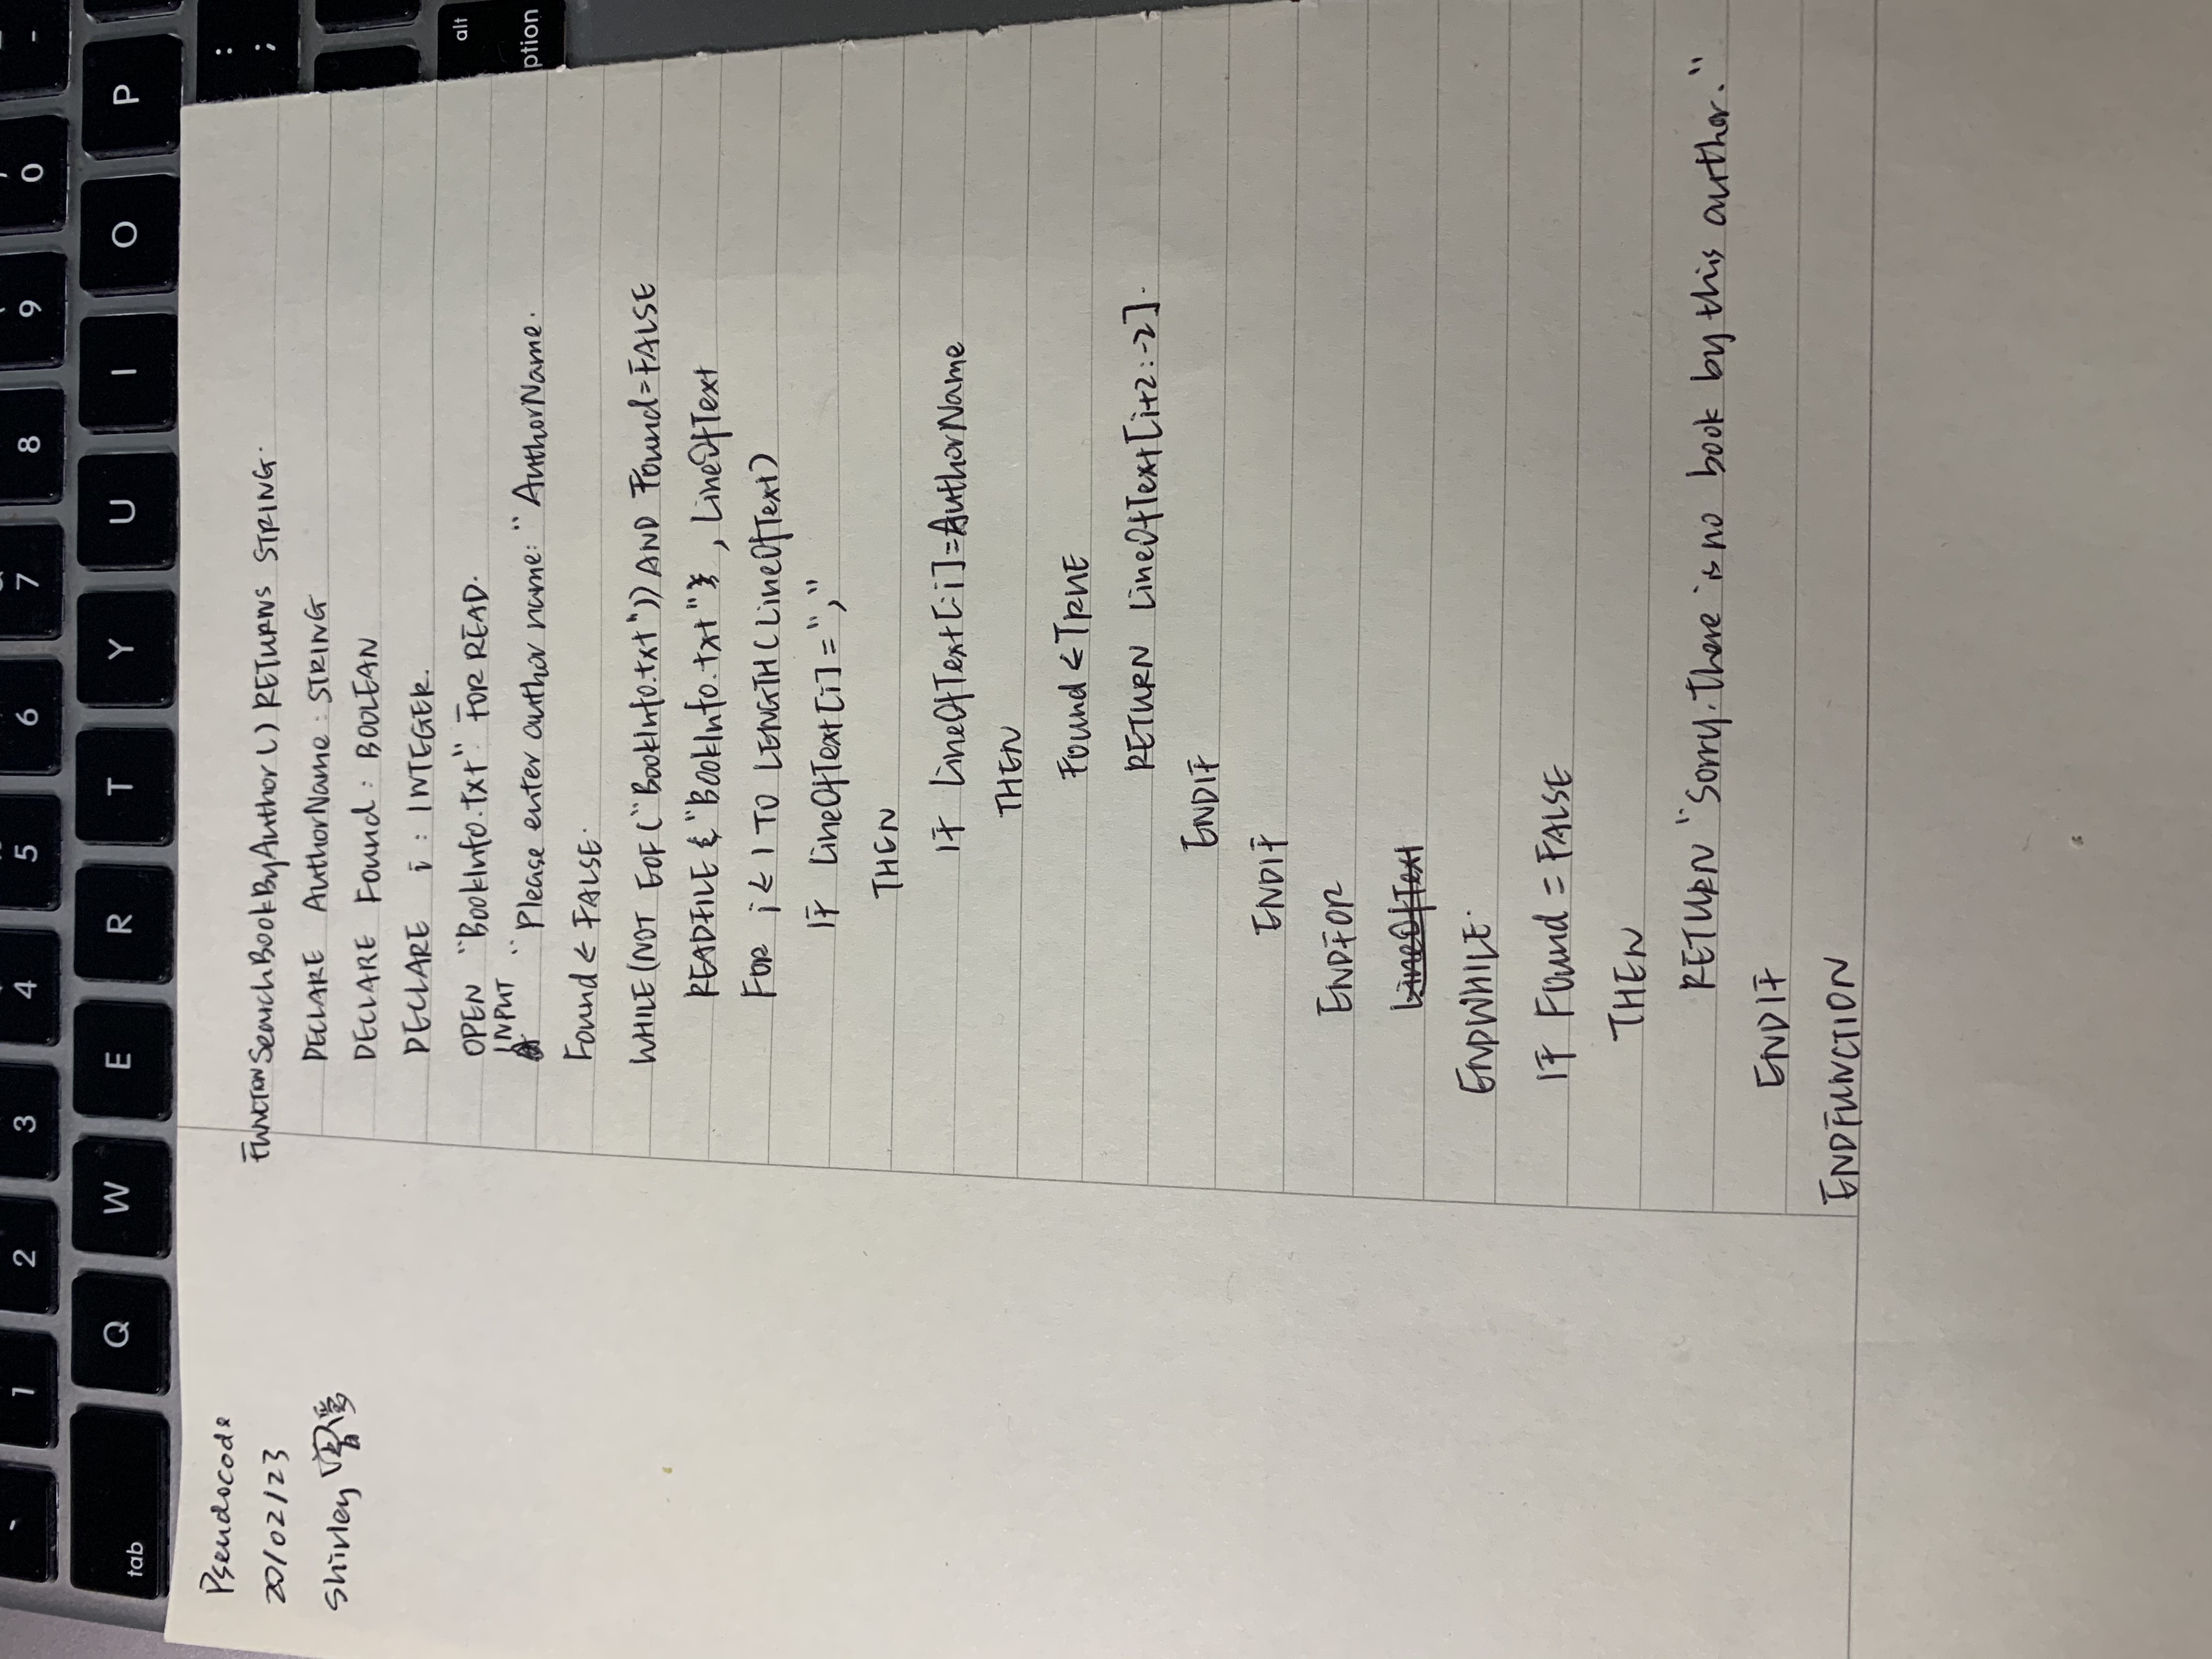 ` 1 2 3 4 5 6 7 8 9 0 -
tab Q W E R T Y U I O P
: ;
alt
ption
Pseudocode
20/02/23
Shirley
FUNCTION SearchBookByAuthor() RETURNS STRING.
DECLARE AuthorName : STRING
DECLARE Found : BOOLEAN
DECLARE i : INTEGER.
OPEN "BookInfo.txt" FOR READ.
INPUT "Please enter author name: " AuthorName.
Found ← FALSE.
WHILE (NOT EOF ("BookInfo.txt")) AND Found = FALSE
READFILE "BookInfo.txt" , LineOfText
FOR i ← 1 TO LENGTH (LineOfText)
IF LineOfText[i] = ","
THEN
IF LineOfText[:i] = AuthorName
THEN
Found ← TRUE
RETURN LineOfText[i+2:-2].
ENDIF
ENDIF
ENDFOR
LineOfText
ENDWHILE.
IF Found = FALSE
THEN
RETURN "Sorry. There is no book by this author."
ENDIF
ENDFUNCTION